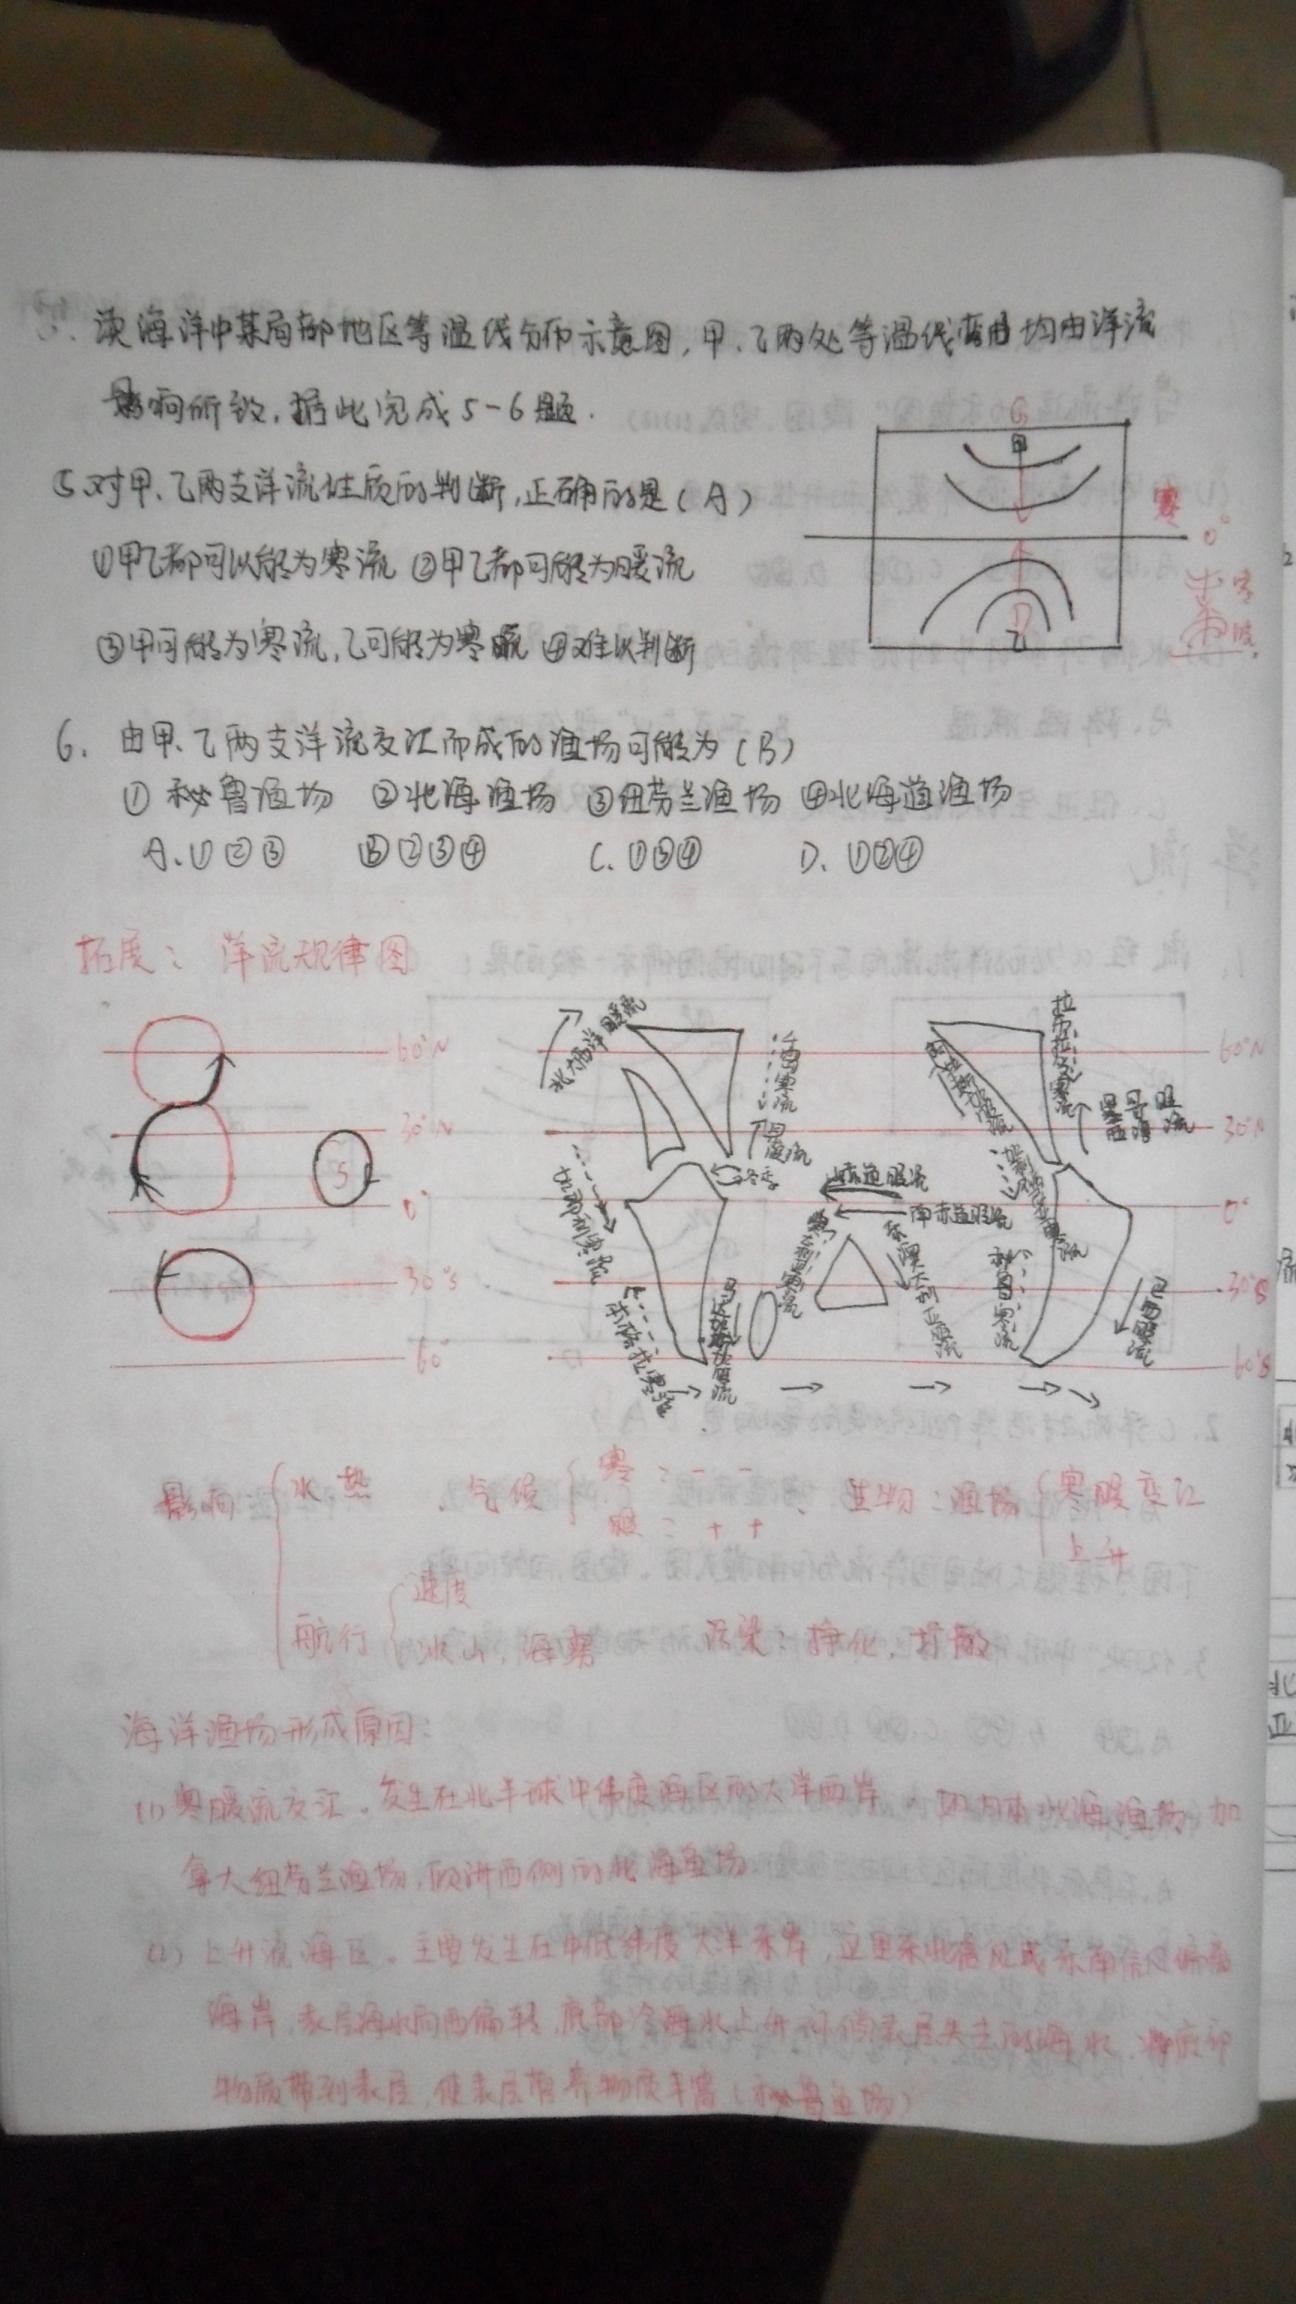 读海洋中某局部地区等温线分布示意图,甲、乙两处等温线弯曲均由洋流
影响所致,据此完成5-6题.
5.对甲、乙两支洋流性质的判断,正确的是(A)
①甲乙都可以能为寒流 ②甲乙都可能为暖流
③甲可能为寒流,乙可能为寒流 ④难以判断
甲
乙
寒
0°
寒
6. 由甲、乙两支洋流交汇而成的渔场可能为(B)
① 秘鲁渔场 ②北海渔场 ③纽芬兰渔场 ④北海道渔场
A.①②③ B②③④ C.①③④ D.①②④
拓展: 洋流规律图
60°N
30°N
0°
30°S
60°
S
北大西洋暖流
千岛寒流
日本暖流
冬季
加那利寒流
本格拉寒流
赤道暖流
南赤道暖流
东澳大利亚暖流
拉布拉多寒流
墨西哥湾暖流
加利福尼亚寒流
秘鲁寒流
巴西暖流
60°N
30°N
0°
30°S
60°S
影响: 水热 、气候 寒:- - 暖:+ + 、生物:渔场 寒暖交汇 上升
航行 速度 冰山,海雾 污染:净化,扩散
海洋渔场形成原因:
(1)寒暖流交汇。发生在北半球中纬度海区的大洋西岸,如日本北海渔场,加
拿大纽芬兰渔场,欧洲西侧的北海鱼场
(2)上升流海区。主要发生在中低纬度大洋东岸,这里东北信风或东南信风偏离
海岸,表层海水向西偏转,底部冷海水上升补偿表层失去的海水,将底部
物质带到表层,使表层营养物质丰富(秘鲁鱼场)